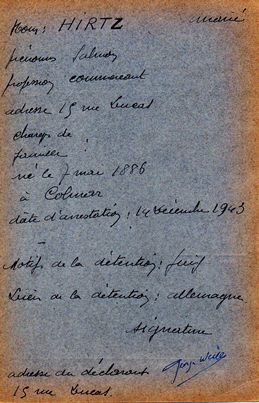 Nom: HIRTZ marié
prénoms Salmon
profession commercant
adresse 15 rue Lucas
charges de
famille :
né le 7 mai 1886
à Colmar
date d'arrestation : 14 Décembre 1943
Motifs de la détention : juif
Lieu de la détention : allemagne
signature
adresse du déclarant
15 rue Lucas.